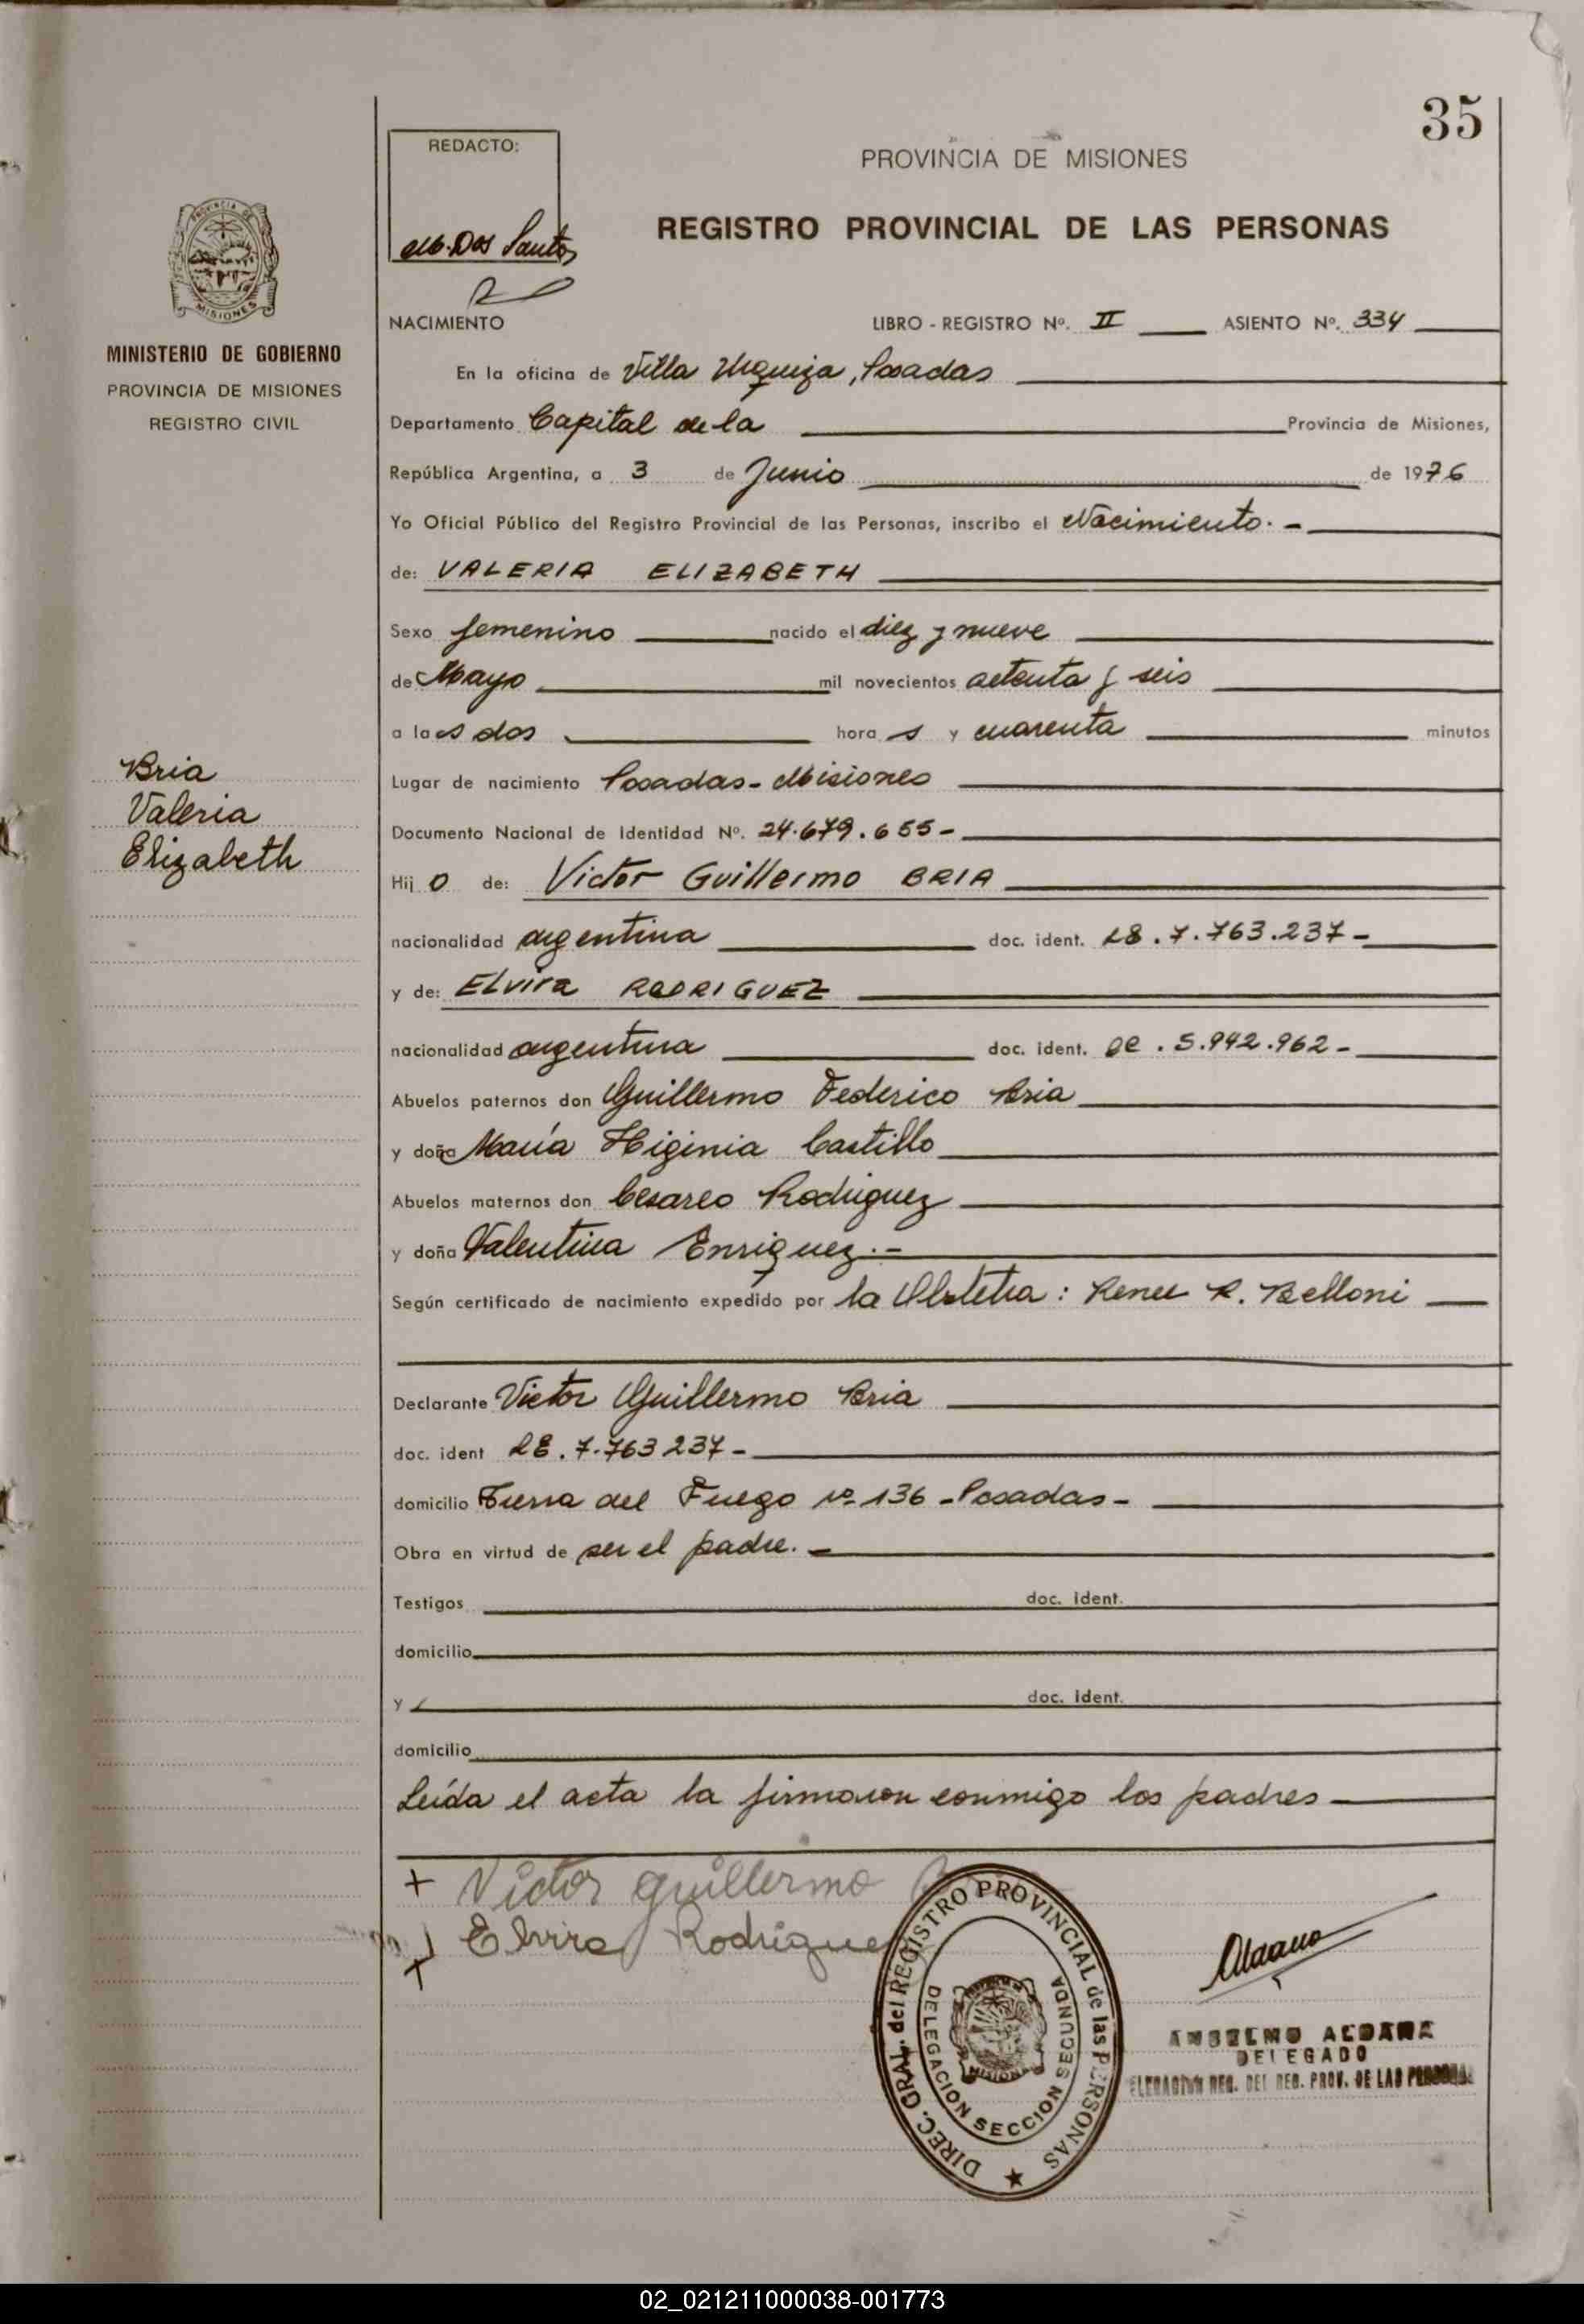 35
REDACTO:
Mo. Dos Santos
PROVINCIA DE MISIONES
REGISTRO PROVINCIAL DE LAS PERSONAS
PROVINCIA DE
MISIONES
MINISTERIO DE GOBIERNO
PROVINCIA DE MISIONES
REGISTRO CIVIL
NACIMIENTO LIBRO - REGISTRO Nº. II ASIENTO Nº. 334
En la oficina de Villa Urquiza, Posadas
Departamento Capital de la Provincia de Misiones,
República Argentina, a 3 de Junio de 1976
Yo Oficial Público del Registro Provincial de las Personas, inscribo el Nacimiento.-
de: VALERIA ELIZABETH
Sexo femenino nacido el diez y nueve
de Mayo mil novecientos setenta y seis
a las dos horas y cuarenta minutos
Bria
Valeria
Elizabeth
Lugar de nacimiento Posadas - Misiones
Documento Nacional de Identidad Nº. 24.679.655-
Hijo de: Victor Guillermo BRIA
nacionalidad argentina doc. ident. LE. 7.763.237-
y de: Elvira RODRIGUEZ
nacionalidad argentina doc. ident. 5.942.962-
Abuelos paternos don Guillermo Federico Bria
y doña María Higinia Castillo
Abuelos maternos don Cesareo Rodriguez
y doña Valentina Enriquez.-
Según certificado de nacimiento expedido por la Obstetra: Renee R. Belloni
Declarante Victor Guillermo Bria
doc. ident LE. 7.763 237-
domicilio Tierra del Fuego nº 136 - Posadas-
Obra en virtud de ser el padre.-
Testigos doc. ident.
domicilio
y doc. ident.
domicilio
Leída el acta la firmaron conmigo los padres
+ Victor Guillermo
+ Elvira Rodriguez
DIREC. GRAL. del REGISTRO PROVINCIAL de las PERSONAS
DELEGACION SECCION SEGUNDA
MISIONES
Aldana
ANSELMO ALDANA
DELEGADO
REG. DEL REG. PROV. DE LAS PERSONAS
02_021211000038-001773